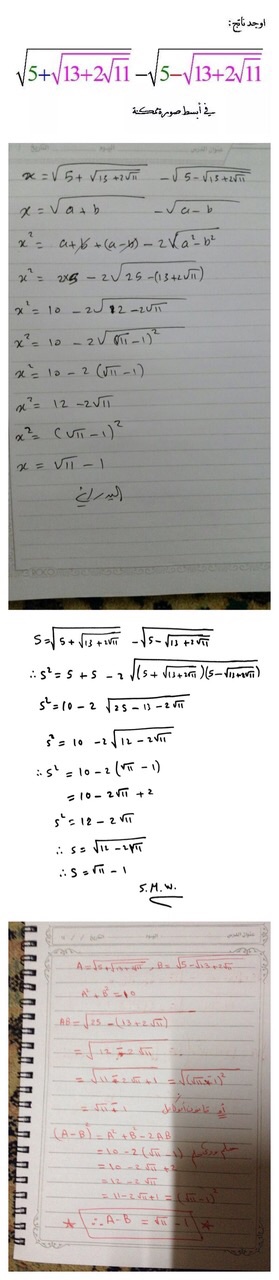 اوجد ناتج:
√(5+√(13+2√11)) − √(5−√(13+2√11))
في أبسط صورة ممكنة
x = √(5 + √(13+2√11)) − √(5 − √(13+2√11))
x = √(a + b) − √(a − b)
x² = a + b + (a − b) − 2√(a² − b²)
x² = 2×5 − 2√(25 − (13+2√11))
x² = 10 − 2√(12 − 2√11)
x² = 10 − 2√(√11 − 1)²
x² = 10 − 2(√11 − 1)
x² = 12 − 2√11
x² = (√11 − 1)²
x = √11 − 1
S = √(5 + √(13+2√11)) − √(5 − √(13+2√11))
∴ S² = 5 + 5 − 2√((5 + √(13+2√11))(5 − √(13+2√11)))
S² = 10 − 2√(25 − 13 − 2√11)
S² = 10 − 2√(12 − 2√11)
∴ S² = 10 − 2(√11 − 1)
= 10 − 2√11 + 2
S² = 12 − 2√11
∴ S = √(12 − 2√11)
∴ S = √11 − 1
S.M.W.
A² + B² = 10
AB = √(25 − (13 + 2√11))
= √(12 − 2√11)
= √(11 − 2√11 + 1) = √(√11 − 1)²
= √11 − 1
(A − B)² = A² + B² − 2AB
= 10 − 2(√11 − 1)
= 10 − 2√11 + 2
= 12 − 2√11
= 11 − 2√11 + 1 = (√11 − 1)²
∴ A − B = √11 − 1